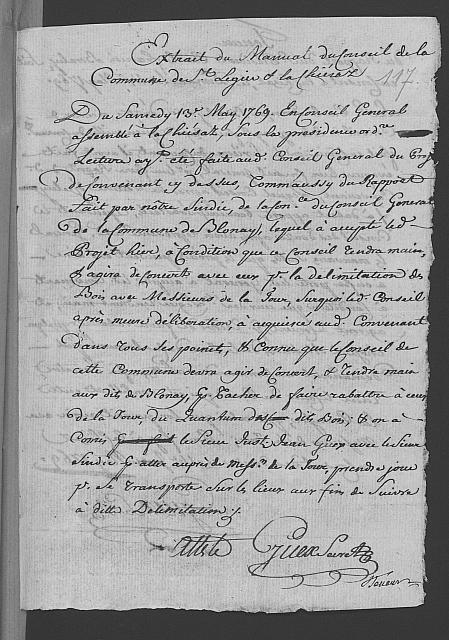 Extrait du Manual du Conseil de la
Commune de St. Legier & la Chiésaz 117.
Du Samedy 13e. May 1769. En Conseil General
assemblé à la Chiésaz, sous la présidence ordre.
Lecture ayt. été faite aud. Conseil General du Proj.
de Convenant cy dessus, Comm'aussy du Rapport
fait par notre Sindic, de la Conce. du Conseil General
de la Commune de Blonay, lequel a accepté led.
Projet hier, à Condition que ce Conseil tendra main,
& agira de Concert avec eux pr. la delimitation des
Bois avec Messieurs de la Tour, Surquoi led. Conseil
après meure déliberation, à acquiescé aud. Convenant
dans tous ses points, & Connu que le Conseil de
cette Commune devra agir de Concert, & tendre main
aux dit de Blonay, pr. tacher de faire rabattre à ceux
de la Tour du Quantum dit Bois, & on à
Commis le Sieur Just. Jean Guex avec le Sieur
Sindic pr. aller auprès de Messrs. de la Tour, prendre jour
pr. Se transporter Sur les lieux aux fins de Suivre
à ditte Delimitation.
Atteste Guex Secret.